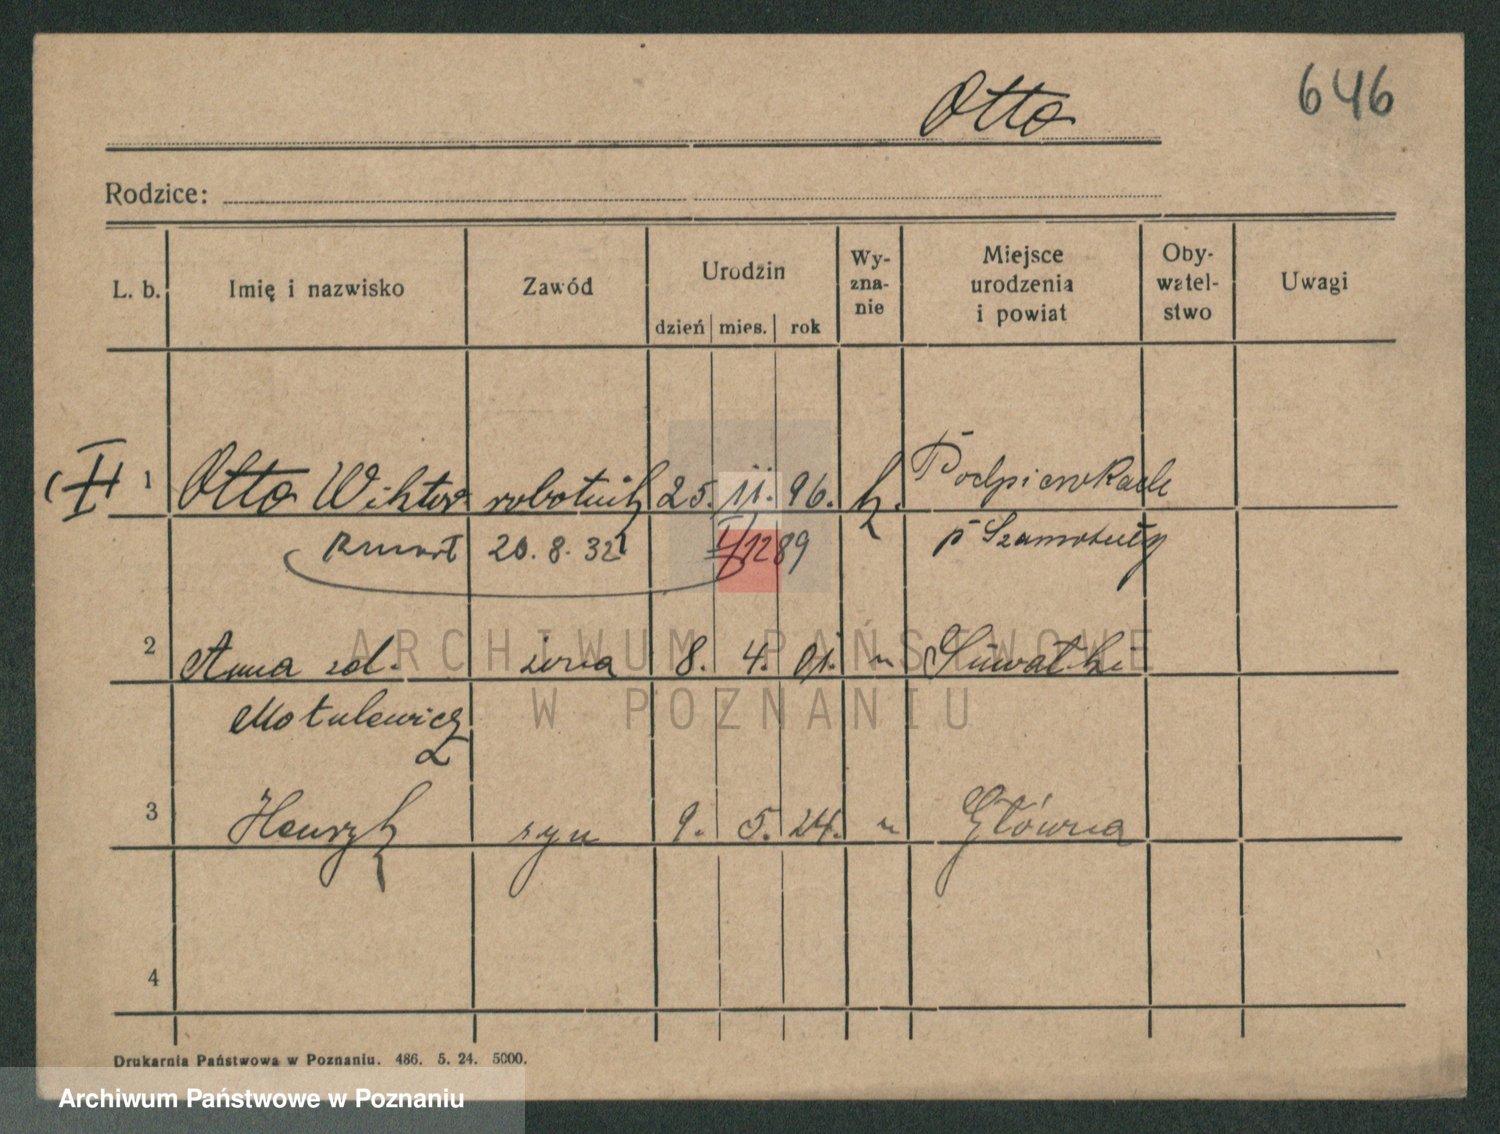 Otto
646
Rodzice:
L. b. Imię i nazwisko Zawód Urodzin dzień mies. rok Wy-zna-nie Miejsce urodzenia i powiat Oby-watel-stwo Uwagi
1 Otto Wiktor robotnik 25. 11. 96. k.
zmarł 20. 8. 32 1289 p Szamotuły
2 Anna zd. żona 8. 4. 01. " Suwałki
Motulewicz
3 Henryk syn 9. 5. 24. " Główna
4
Drukarnia Państwowa w Poznaniu. 486. 5. 24. 5000.
ARCHIWUM PAŃSTWOWE
W POZNANIU
Archiwum Państwowe w Poznaniu